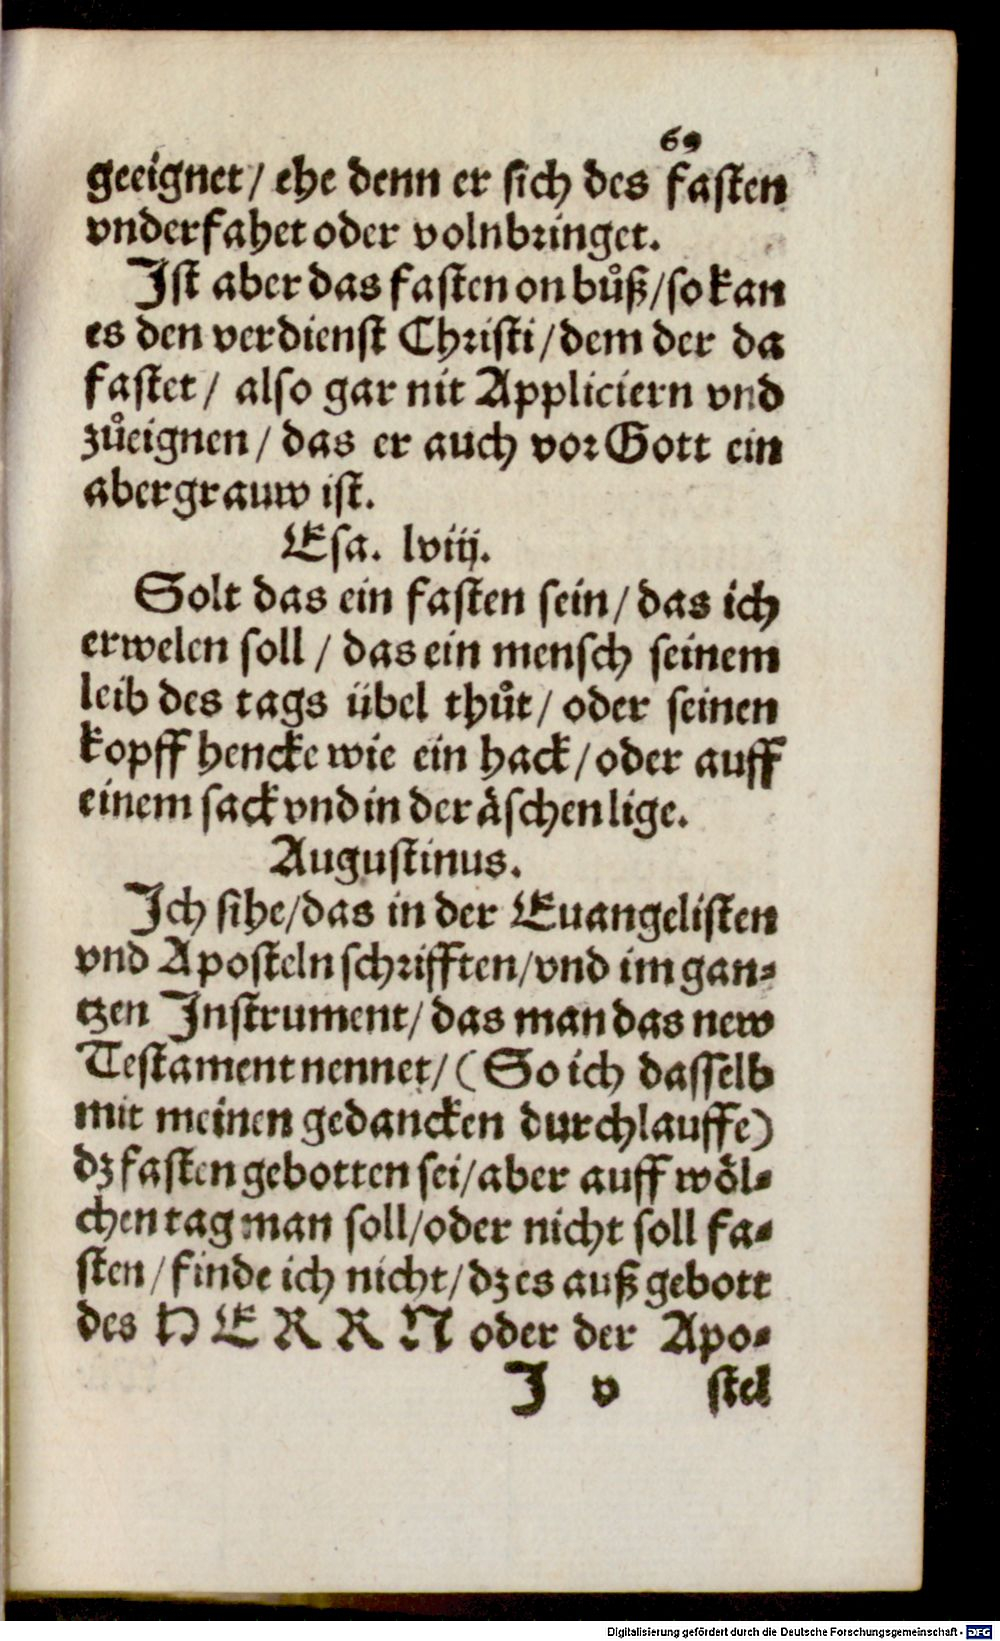 69
geeignet/ ehe denn er sich des fasten
vnderfahet oder volnbringet.
Ist aber das fasten on bůß/so kan
es den verdienst Christi/dem der da
fastet/ also gar nit Appliciern vnd
zůeignen/das er auch vor Gott ein
abergrauw ist.
Esa. lviij.
Solt das ein fasten sein/das ich
erwelen soll/das ein mensch seinem
leib des tags übel thůt/oder seinen
kopff hencke wie ein hack/oder auff
einem sack vnd in der äschen lige.
Augustinus.
Ich sihe/das in der Euangelisten
vnd Aposteln schrifften/vnd im gan⸗
tzen Instrument/das man das new
Testament nennet/(So ich dasselb
mit meinen gedancken durchlauffe)
dz fasten gebotten sei/aber auff wöl⸗
chen tag man soll/oder nicht soll fa⸗
sten/finde ich nicht/dz es auß gebott
des HERRN oder der Apo⸗
I v stel
Digitalisierung gefördert durch die Deutsche Forschungsgemeinschaft - DFG